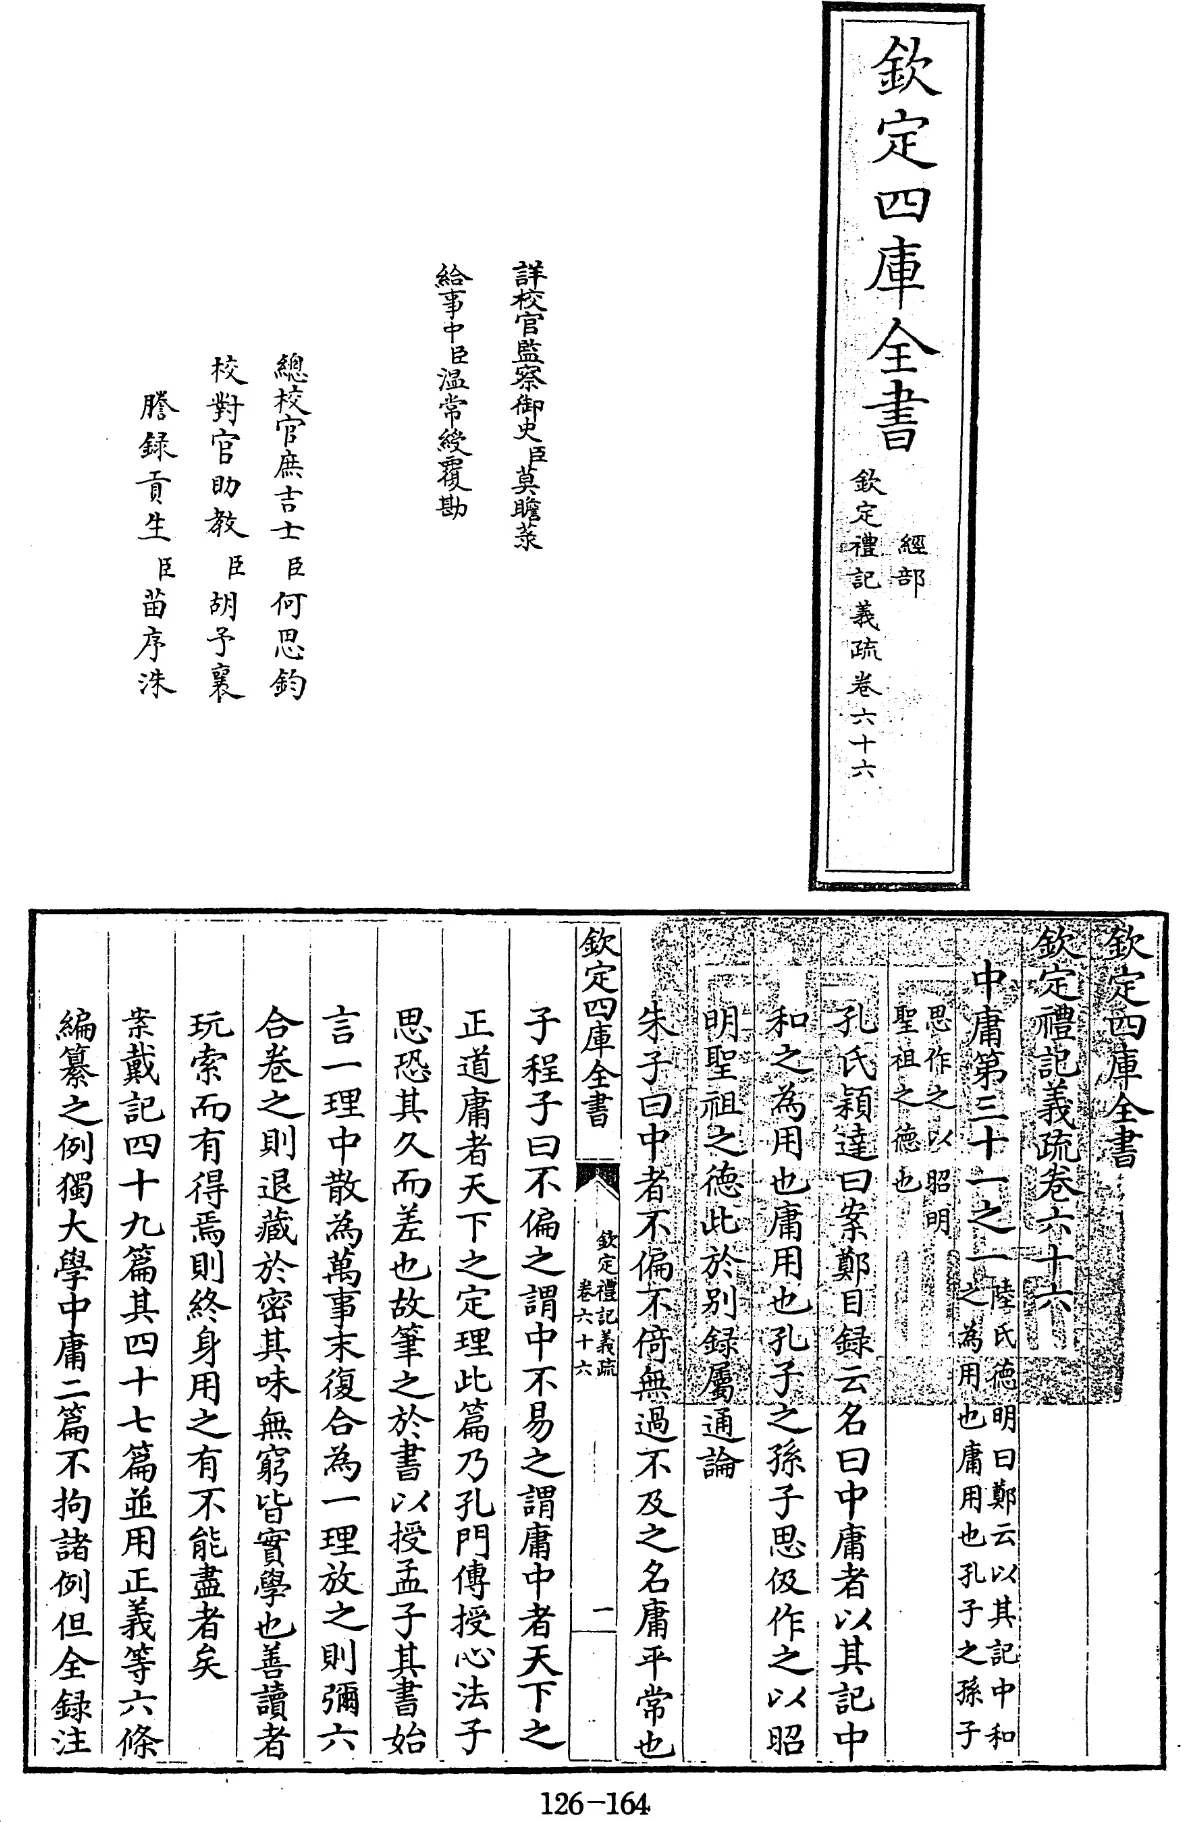 欽定四庫全書
經部
欽定禮記義疏卷六十六
詳校官監察御史臣莫瞻菉
給事中臣溫常綬覆勘
總校官庶吉士臣何思鈞
校對官助教臣胡予襄
謄錄貢生臣苗序洙
欽定四庫全書
欽定禮記義疏卷六十六
中庸第三十一之一陸氏德明曰鄭云以其記中和
之為用也庸用也孔子之孫子
思作之以昭明
聖祖之德也
孔氏穎達曰案鄭目録云名曰中庸者以其記中
和之為用也庸用也孔子之孫子思伋作之以昭
明聖祖之德此於别録屬通論
朱子曰中者不偏不倚無過不及之名庸平常也
欽定四庫全書
欽定禮記義疏
卷六十六
一
子程子曰不偏之謂中不易之謂庸中者天下之
正道庸者天下之定理此篇乃孔門傳授心法子
思恐其久而差也故筆之於書以授孟子其書始
言一理中散為萬事末復合為一理放之則彌六
合卷之則退藏於密其味無窮皆實學也善讀者
玩索而有得焉則終身用之有不能盡者矣
案戴記四十九篇其四十七篇並用正義等六條
編纂之例獨大學中庸二篇不拘諸例但全録注
126-164